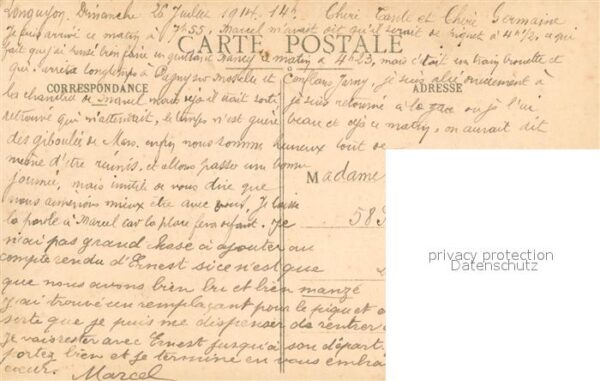 Longuyon, Dimanche 26 Juillet 1914. 14h Chère Tante et Chère Germaine
Je suis arrivé ce matin à 7h55, Marcel m'avait dit qu'il serait de piquet à 4h1/2, ce qui
CARTE POSTALE
fait que j'ai bien faire en quittant Nancy ce matin à 4h23, mais c'était un train brouette et
qui arrêta longtemps à Pagny sur Moselle et Conflans Jarny, je suis allé directement à
CORRESPONDANCE
ADRESSE
la chambre de Marcel mais déjà il était sorti je suis retourné à la gare où je l'ai
retrouvé qui m'attendait, le temps n'est guère beau et déjà ce matin, on aurait dit
des giboulées de Mars. enfin nous sommes heureux tout de
même d'être réunis, et allons passer une bonne
journée, mais inutile de vous dire que
nous aimerions mieux être avec vous. Je laisse
la parole à Marcel car la place fera défaut. Je
n'ai pas grand chose à ajouter au
compte rendu d'Ernest si ce n'est que
que nous avons bien bu et bien mangé
j'ai trouvé un remplaçant pour le piquet
sorte que je puis me dispenser de rentrer
Je vais rester avec Ernest jusqu'à son départ.
portez bien et je termine en vous
cœur. Marcel
Madame
58
privacy protection
Datenschutz